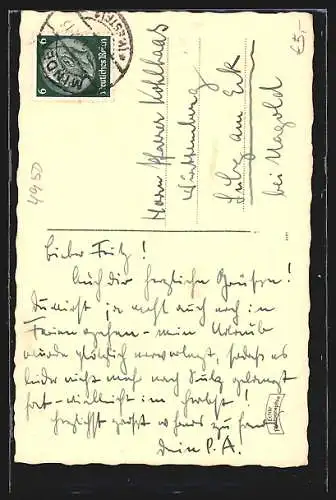 MINDEN
(WESTF)
Deutsches Reich
6 6
€5,-
4950
Herrn Pfarrer Kohlhaas
Württemberg
Sulz am Eck
bei Nagold
Lieber Fritz!
Auch dir herzliche Grüsse!
Du nicht ja wohl auch noch in
Ferien gehen – mein Urlaub
wurde plötzlich verlegt, sodass es
leider nicht mehr nach Sulz gelangt
hat – vielleicht im Herbst!
Herzlichst grüsst
zu
dein P.A.